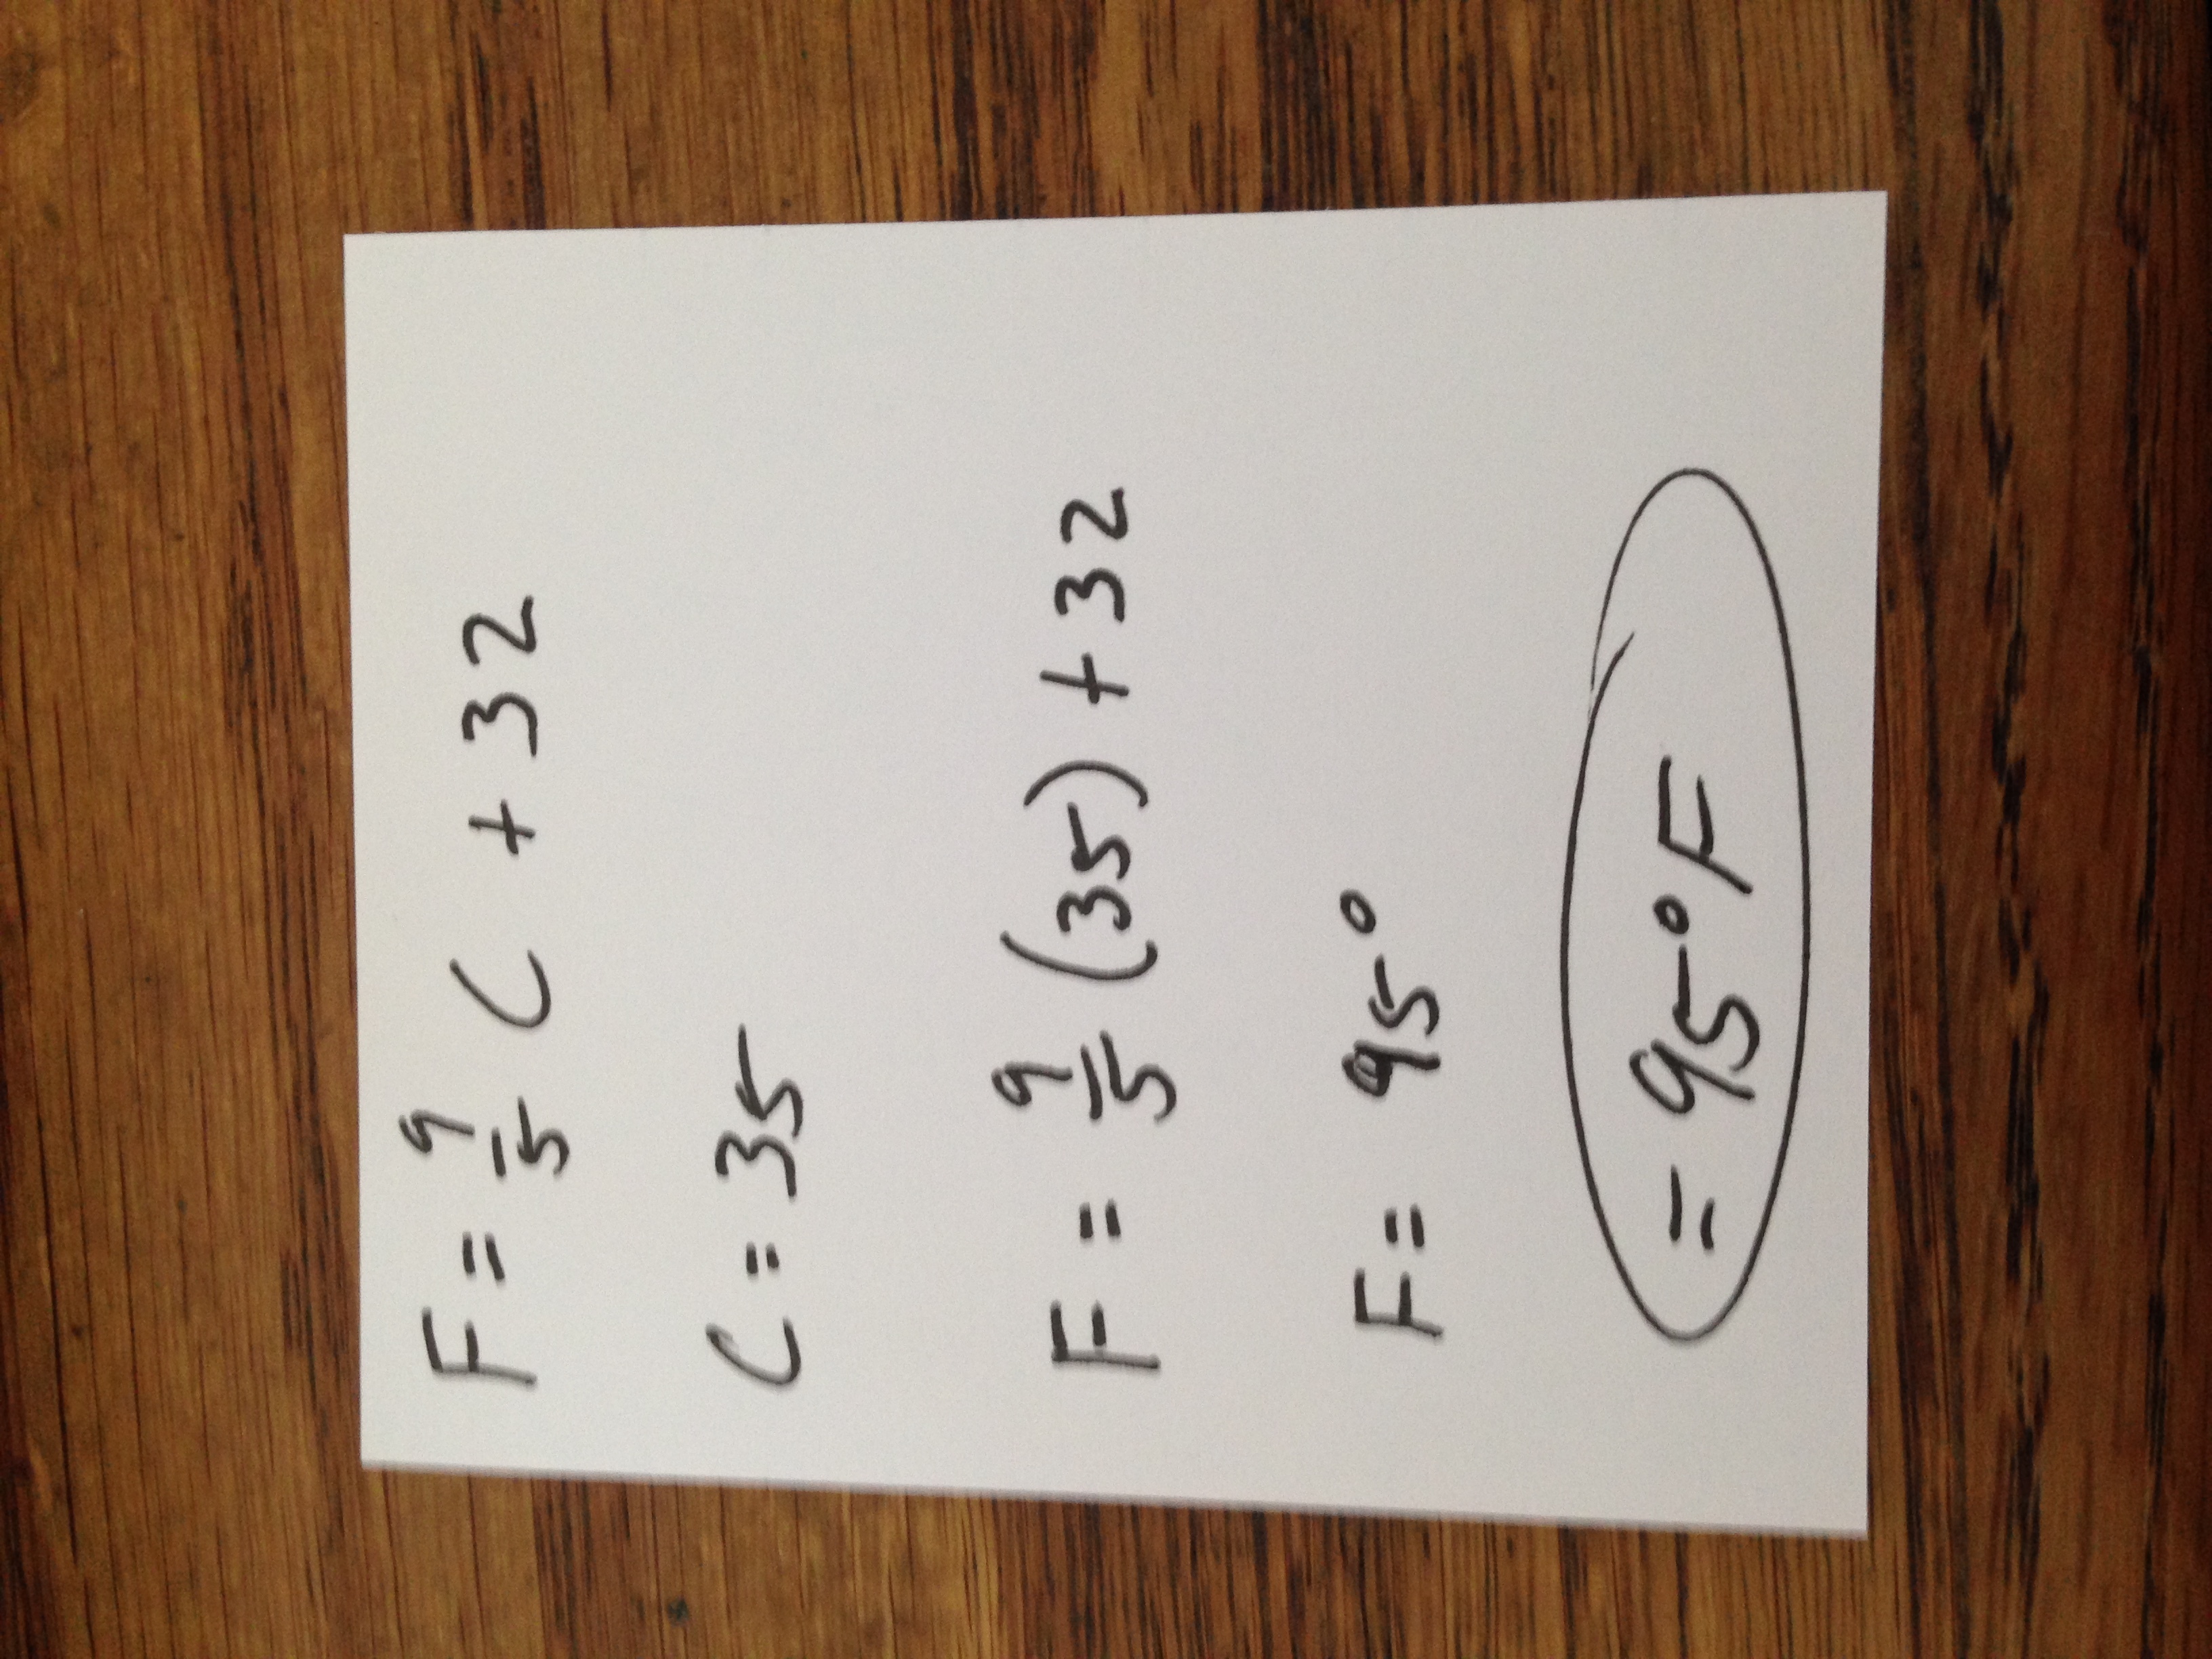 F = 9/5 C + 32
C = 35
F = 9/5 (35) + 32
F = 95°
= 95°F